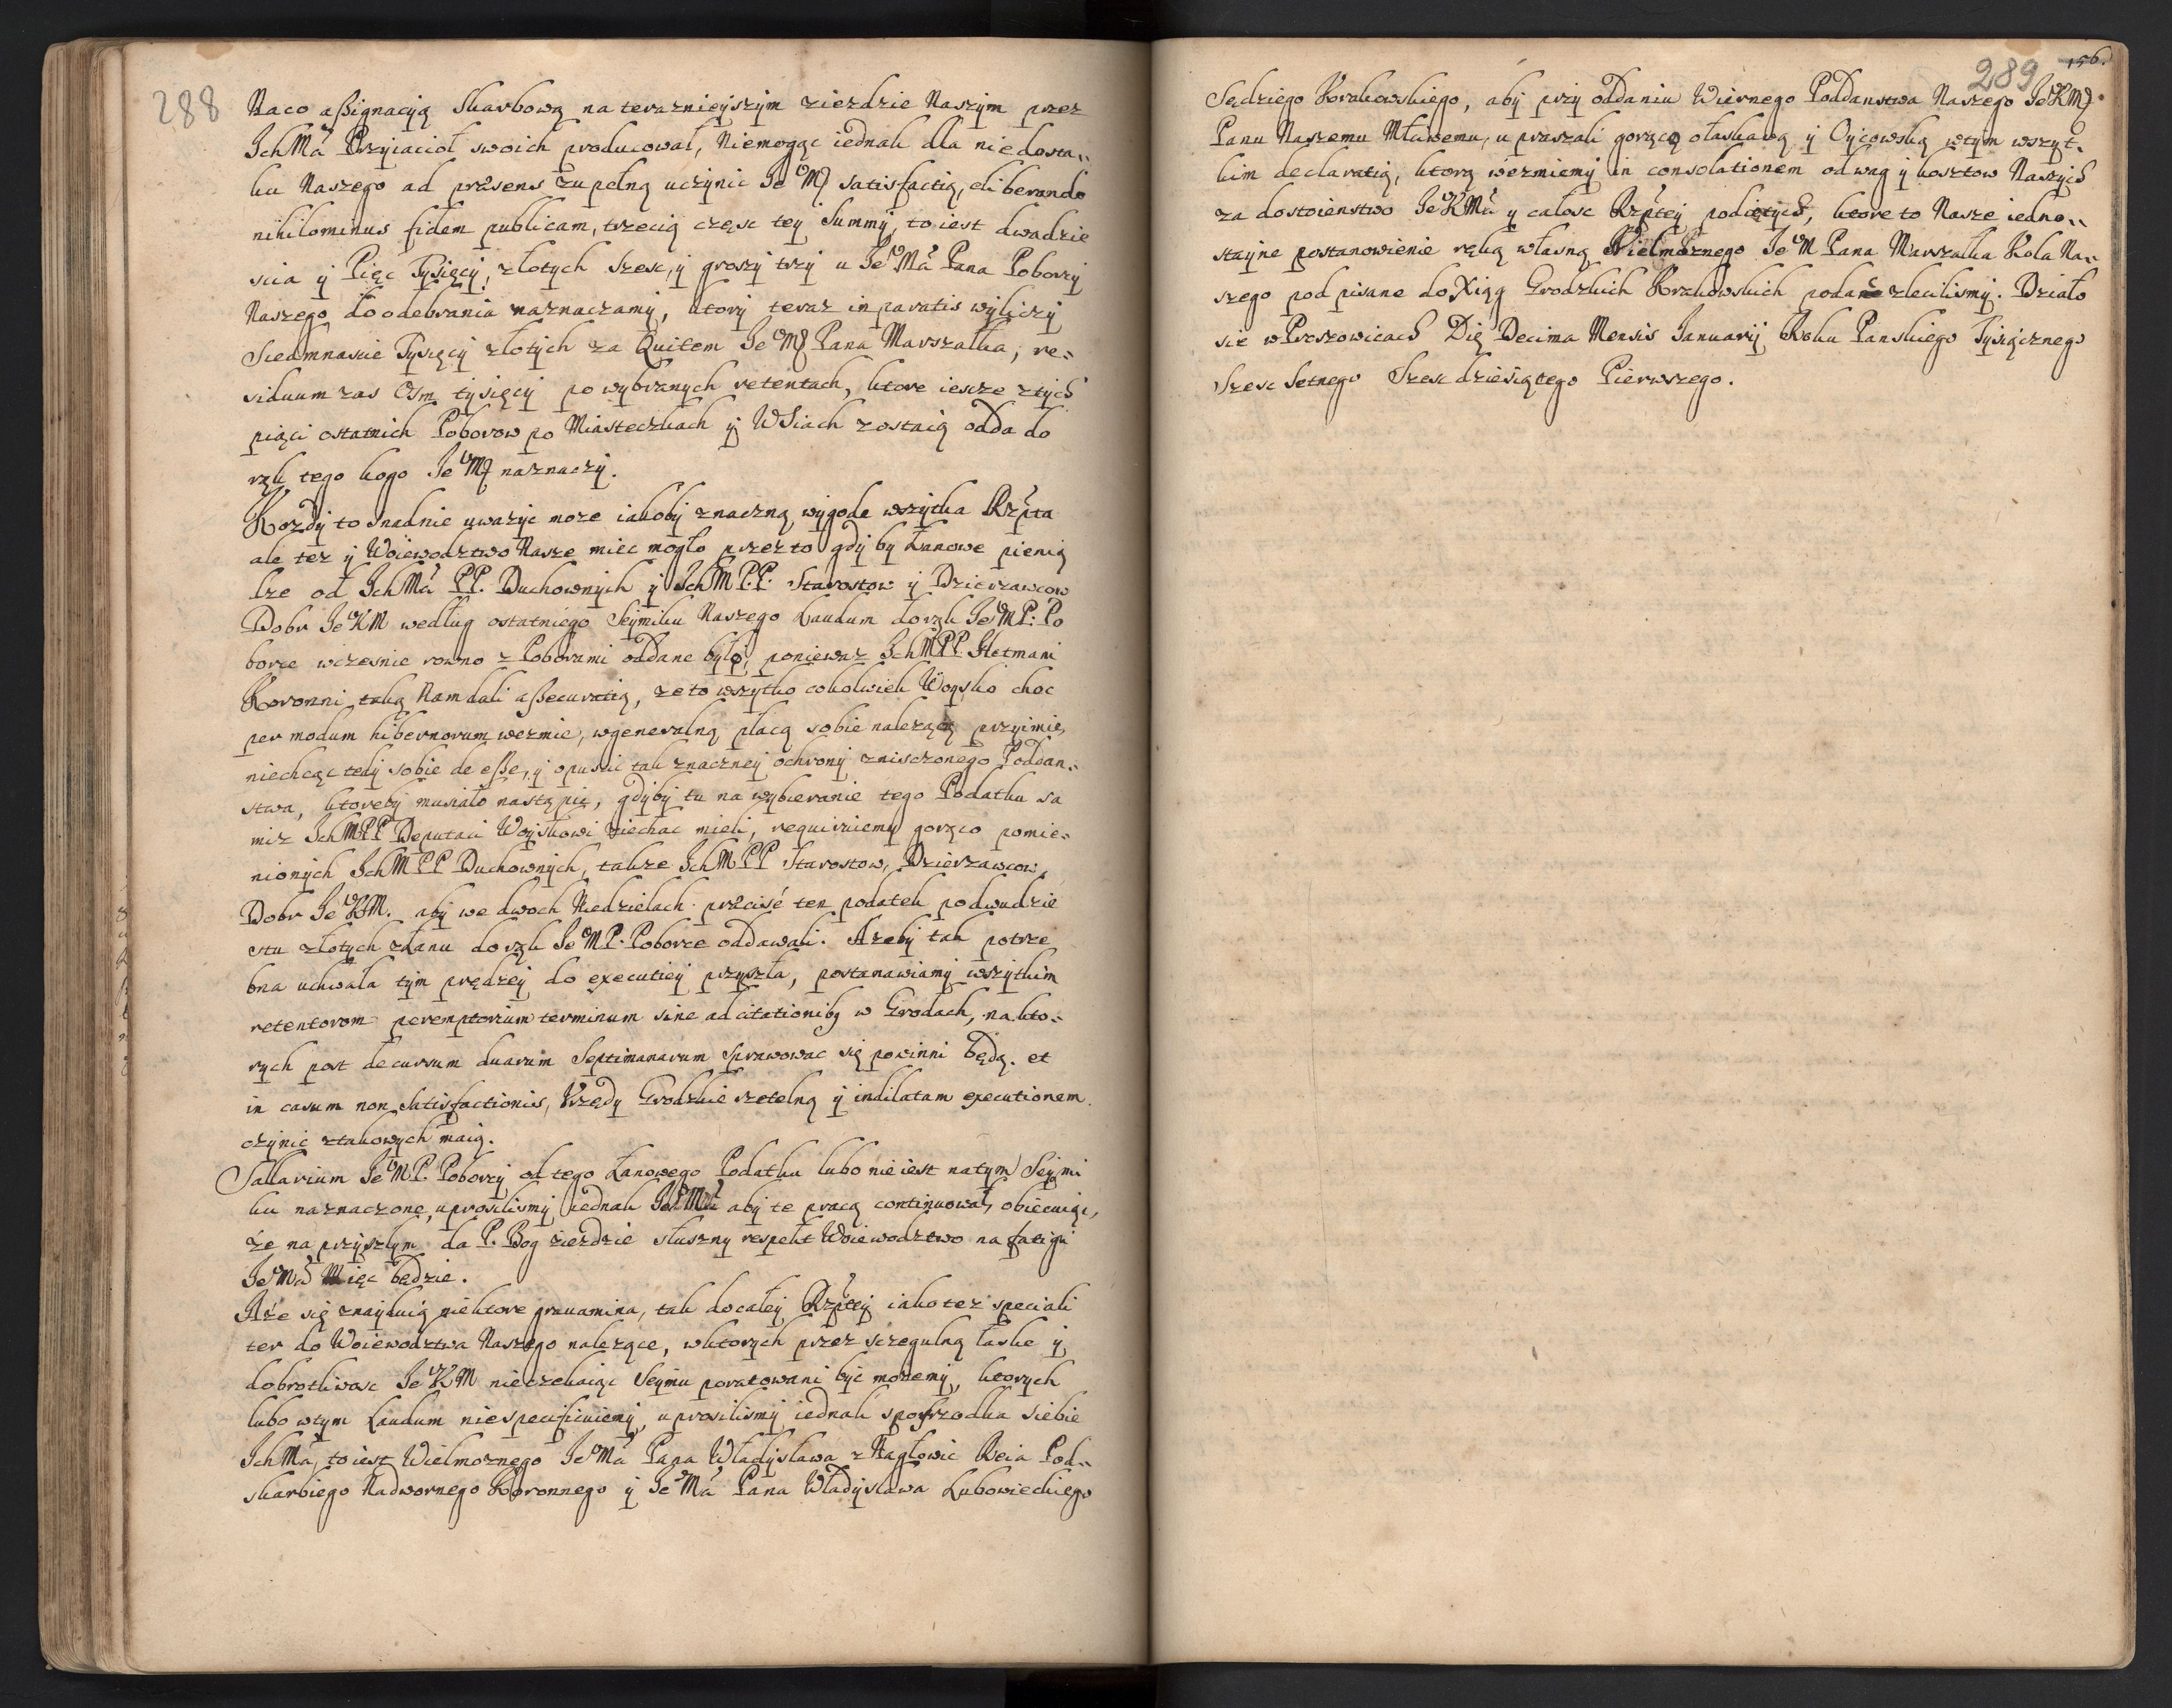 288
Na co assignacyą Skarbową na teraznieyszym zieżdzie Naszym przez
IchMci Przyiacioł swoich producował, Niemogąc iednak dla niedosta„
ku Naszego ad præsens zupełną uczynic JeoMci satisfactią, eliberando
nihilominus fidem publicam, trzecią częsc tey Summy, to iest dwadzie
scia y Pięc Tysięcy, złotych szesc, y groszy trzy u JeoMci Pana Poborcy
Naszego do odebrania naznaczamy, ktory teraz in paratis wyliczy
Siedmnascie Tysięcy złotych za Quitem JeoMci Pana Marszałka, re„
siduum zas Osm tysięcy po wybranych retentach, ktore iescze z tych
piąci ostatnich Poborow po Miasteczkach y Wsiach zostaią odda do
rąk tego kogo JeoMci naznaczy.
Kozdy to snadnie uwazyc moze iakoby znaczną wygode wszytka Rzpta
ale tez y Woiewodztwo Nasze miec mogło przez to gdy by Łanowe pienią
dze od IchMci PP. Duchownych y IchM P.P. Starostow y Dzierzawcow
Dobr JeoKM według ostatniego Seymiku Naszego Laudum do rąk JeoM P: Po
borce wczesnie rowno z Poborami oddane było, poniewaz IchMPP. Hetmani
Koronni taką Nam dali assecuratią, ze to wszytko cokolwiek Woysko choc
per modum hibernorum wezmie, w generalną płacą sobie nalezącą przyimie,
niechcąc tedy sobie de esse, y opuscic tak znaczney ochrony zniszczonego Poddan„
stwa, ktoreby musiało nastąpic, gdyby tu na wybieranie tego Podatku sa
miz IchMPP Deputaci Woyskowi ziechac mieli, requiruiemy gorąco pomie„
nionych IchMPP Duchownych, takze IchMPP Starostow, Dzierzawcow
Dobr JeoKM. aby we dwoch Niedzielach præcise ten podatek po dwudzie
stu złotych z Łanu do rąk JeoMP. Poborce oddawali. A zeby tak potrze
bna uchwała tym prędzey do executiey przyszła, postanawiamy wszytkim
retentorom peremptorium terminum sine ad citationibus w Grodach, na kto„
rych post decursum duarum Septimanarum sprawowac się powinni będą. et
in casum non satisfactionis, Vrzędy Grodzkie rzetelną y indilatam executionem
czynic z takowych maią.
Sallarium JeoMP. Poborcy od tego Łanowego Podatku lubo nie iest na tym Seymi
ku naznaczone, uprosilismy iednak JeoMci aby te pracą continuował, obiecuiąc,
że na przyszłym da P. Bog zieżdzie słuszny respekt Woiewodztwo na fatigi
JeoMci Miec będzie.
A że się znayduią niektore grauamina, tak do całey Rzptey iako tez speciali
ter do Woiewodztwa Naszego nalezące, w ktorych przez sczegulną łaske y
dobrotliwosc JeoKM nieczekaiąc Seymu poratowani byc możemy, ktorych
lubo w tym Laudum niespecificuiemy, uprosilismy iednak z posrzodka siebie
IchMci, to iest Wielmoznego JeoMci Pana Władysława z Nagłowic Reia Pod„
skarbiego Nadwornego Koronnego y JeoMci Pana Władysława Lubowieckiego
289 156.
Sędziego Krakowskiego, aby przy oddaniu Wiernego Poddanstwa Naszego JeoKMci
Panu Naszemu Mciwemu, upraszali gorąco o łaskawą y Oycowską w tym wszyt„
kim declaratią, ktorą wezmiemy in consolationem odwag y kosztow Naszych
za dostoienstwo JeoKMci y całosc Rzptey podiętych, ktore to Nasze iedno„
stayne postanowienie ręką własną Wielmoznego JeoM Pana Marszałka Koła Na„
szego podpisane do Xiąg Grodzkich Krakowskich podac zlecilismy. Działo
sie w Proszowicach Die Decima Mensis Januarij Roku Panskiego Tysiącznego
Szesc Setnego Szescdziesiątego Pierwszego.